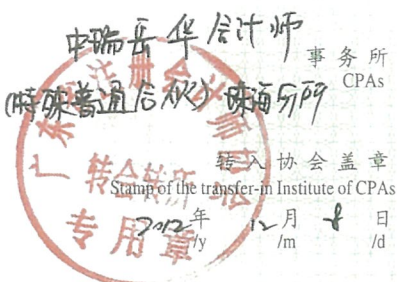 中瑞岳华会计师
事务所
CPAs
(特殊普通合伙)珠海分所
转入协会盖章
Stamp of the transfer-in Institute of CPAs
2012年12月8日
/y /m /d
广东省注册会计师协会
转会转所
专用章